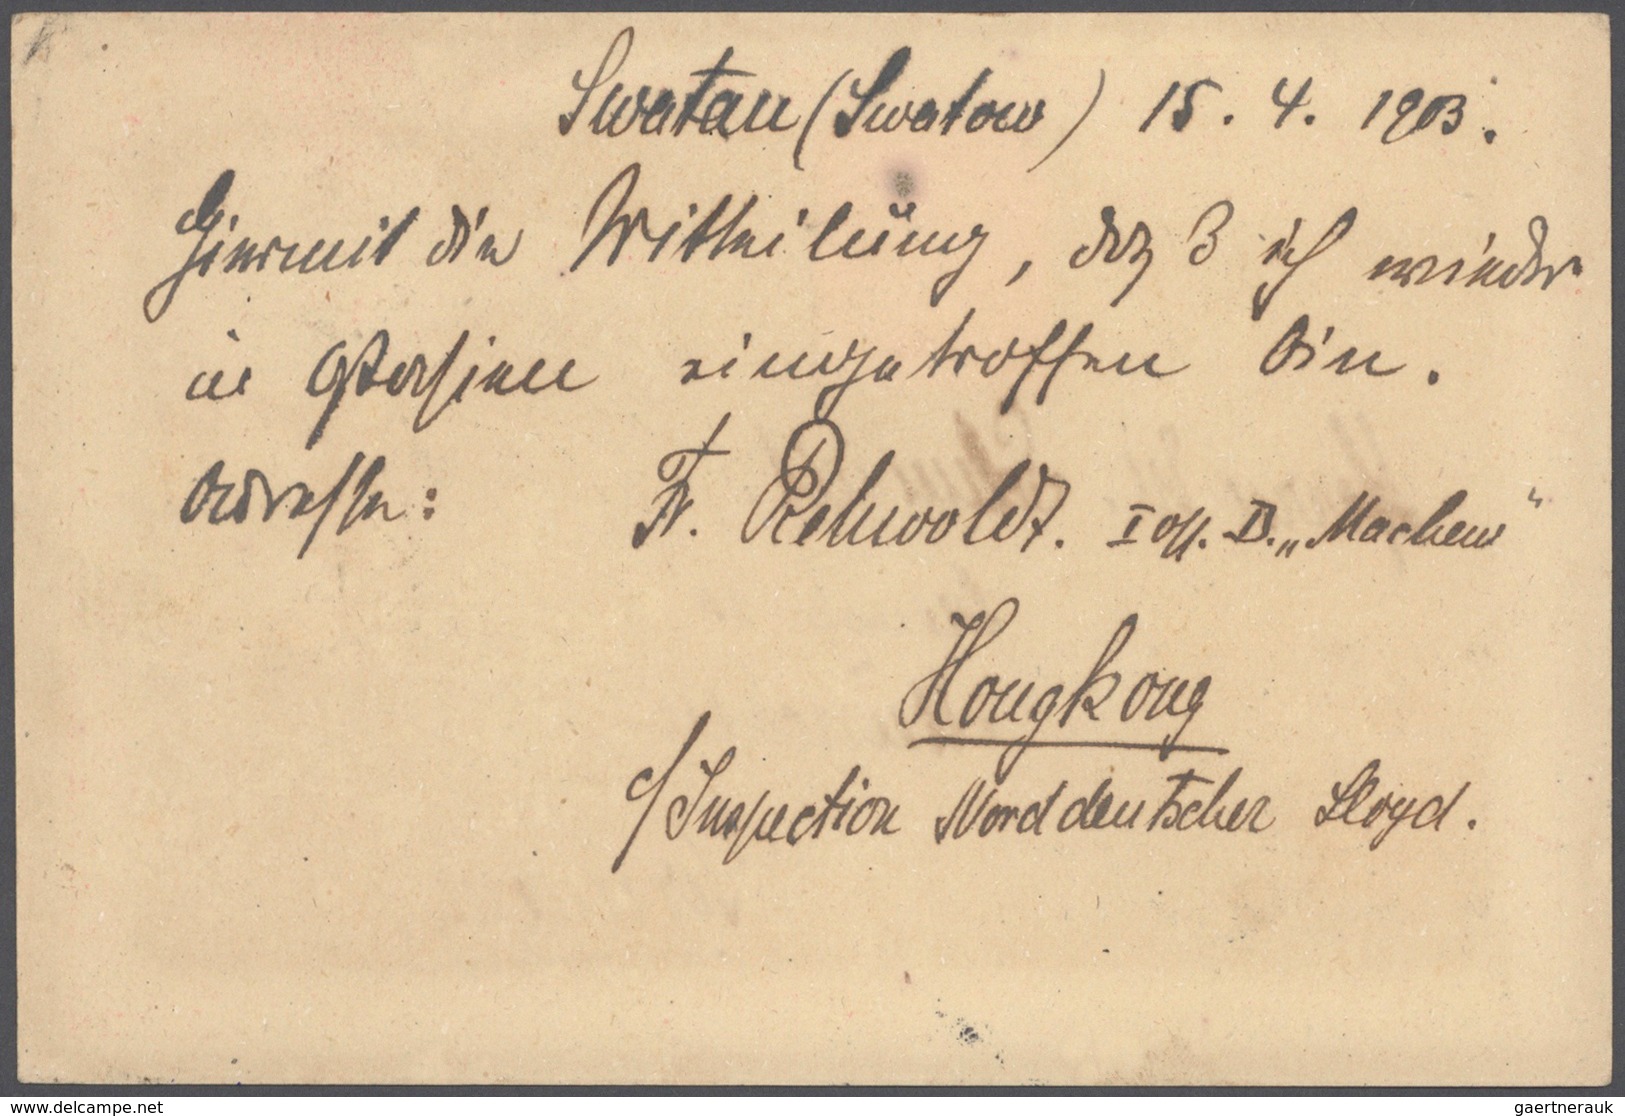 Swatau (Swatow) 15. 4. 1903.
Hiermit die Mitteilung, daß ich wieder
in Ostasien eingetroffen bin.
Adresse: Fr. Rehwoldt. I Off. D. „Machew"
Hongkong
c/ Inspection Norddeutscher Lloyd.
(c) philasearch.com
gaertnerauk